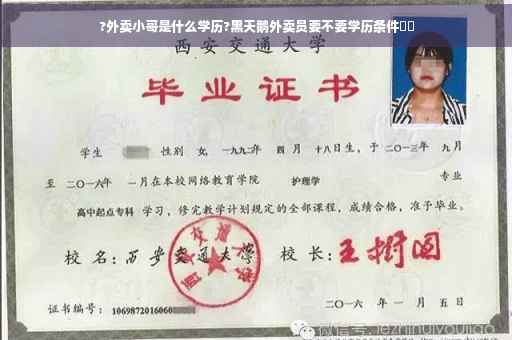 ?外卖小哥是什么学历?黑天鹅外卖员要不要学历条件
西安交通大学
毕业证书
学生 性别 女, 一九九二年 四月 十八日生, 于 二〇一三年 九月
至 二〇一六年 一月在本校网络教育学院 护理学 专业
高中起点专科 学习, 修完教学计划规定的全部课程, 成绩合格, 准予毕业。
校 名: 西安交通大学 校 长: 王树国
西安交通大学
证书编号: 1069872016060
二〇一六 年 一 月 五 日
微信号: jiezhihuiyoujiao